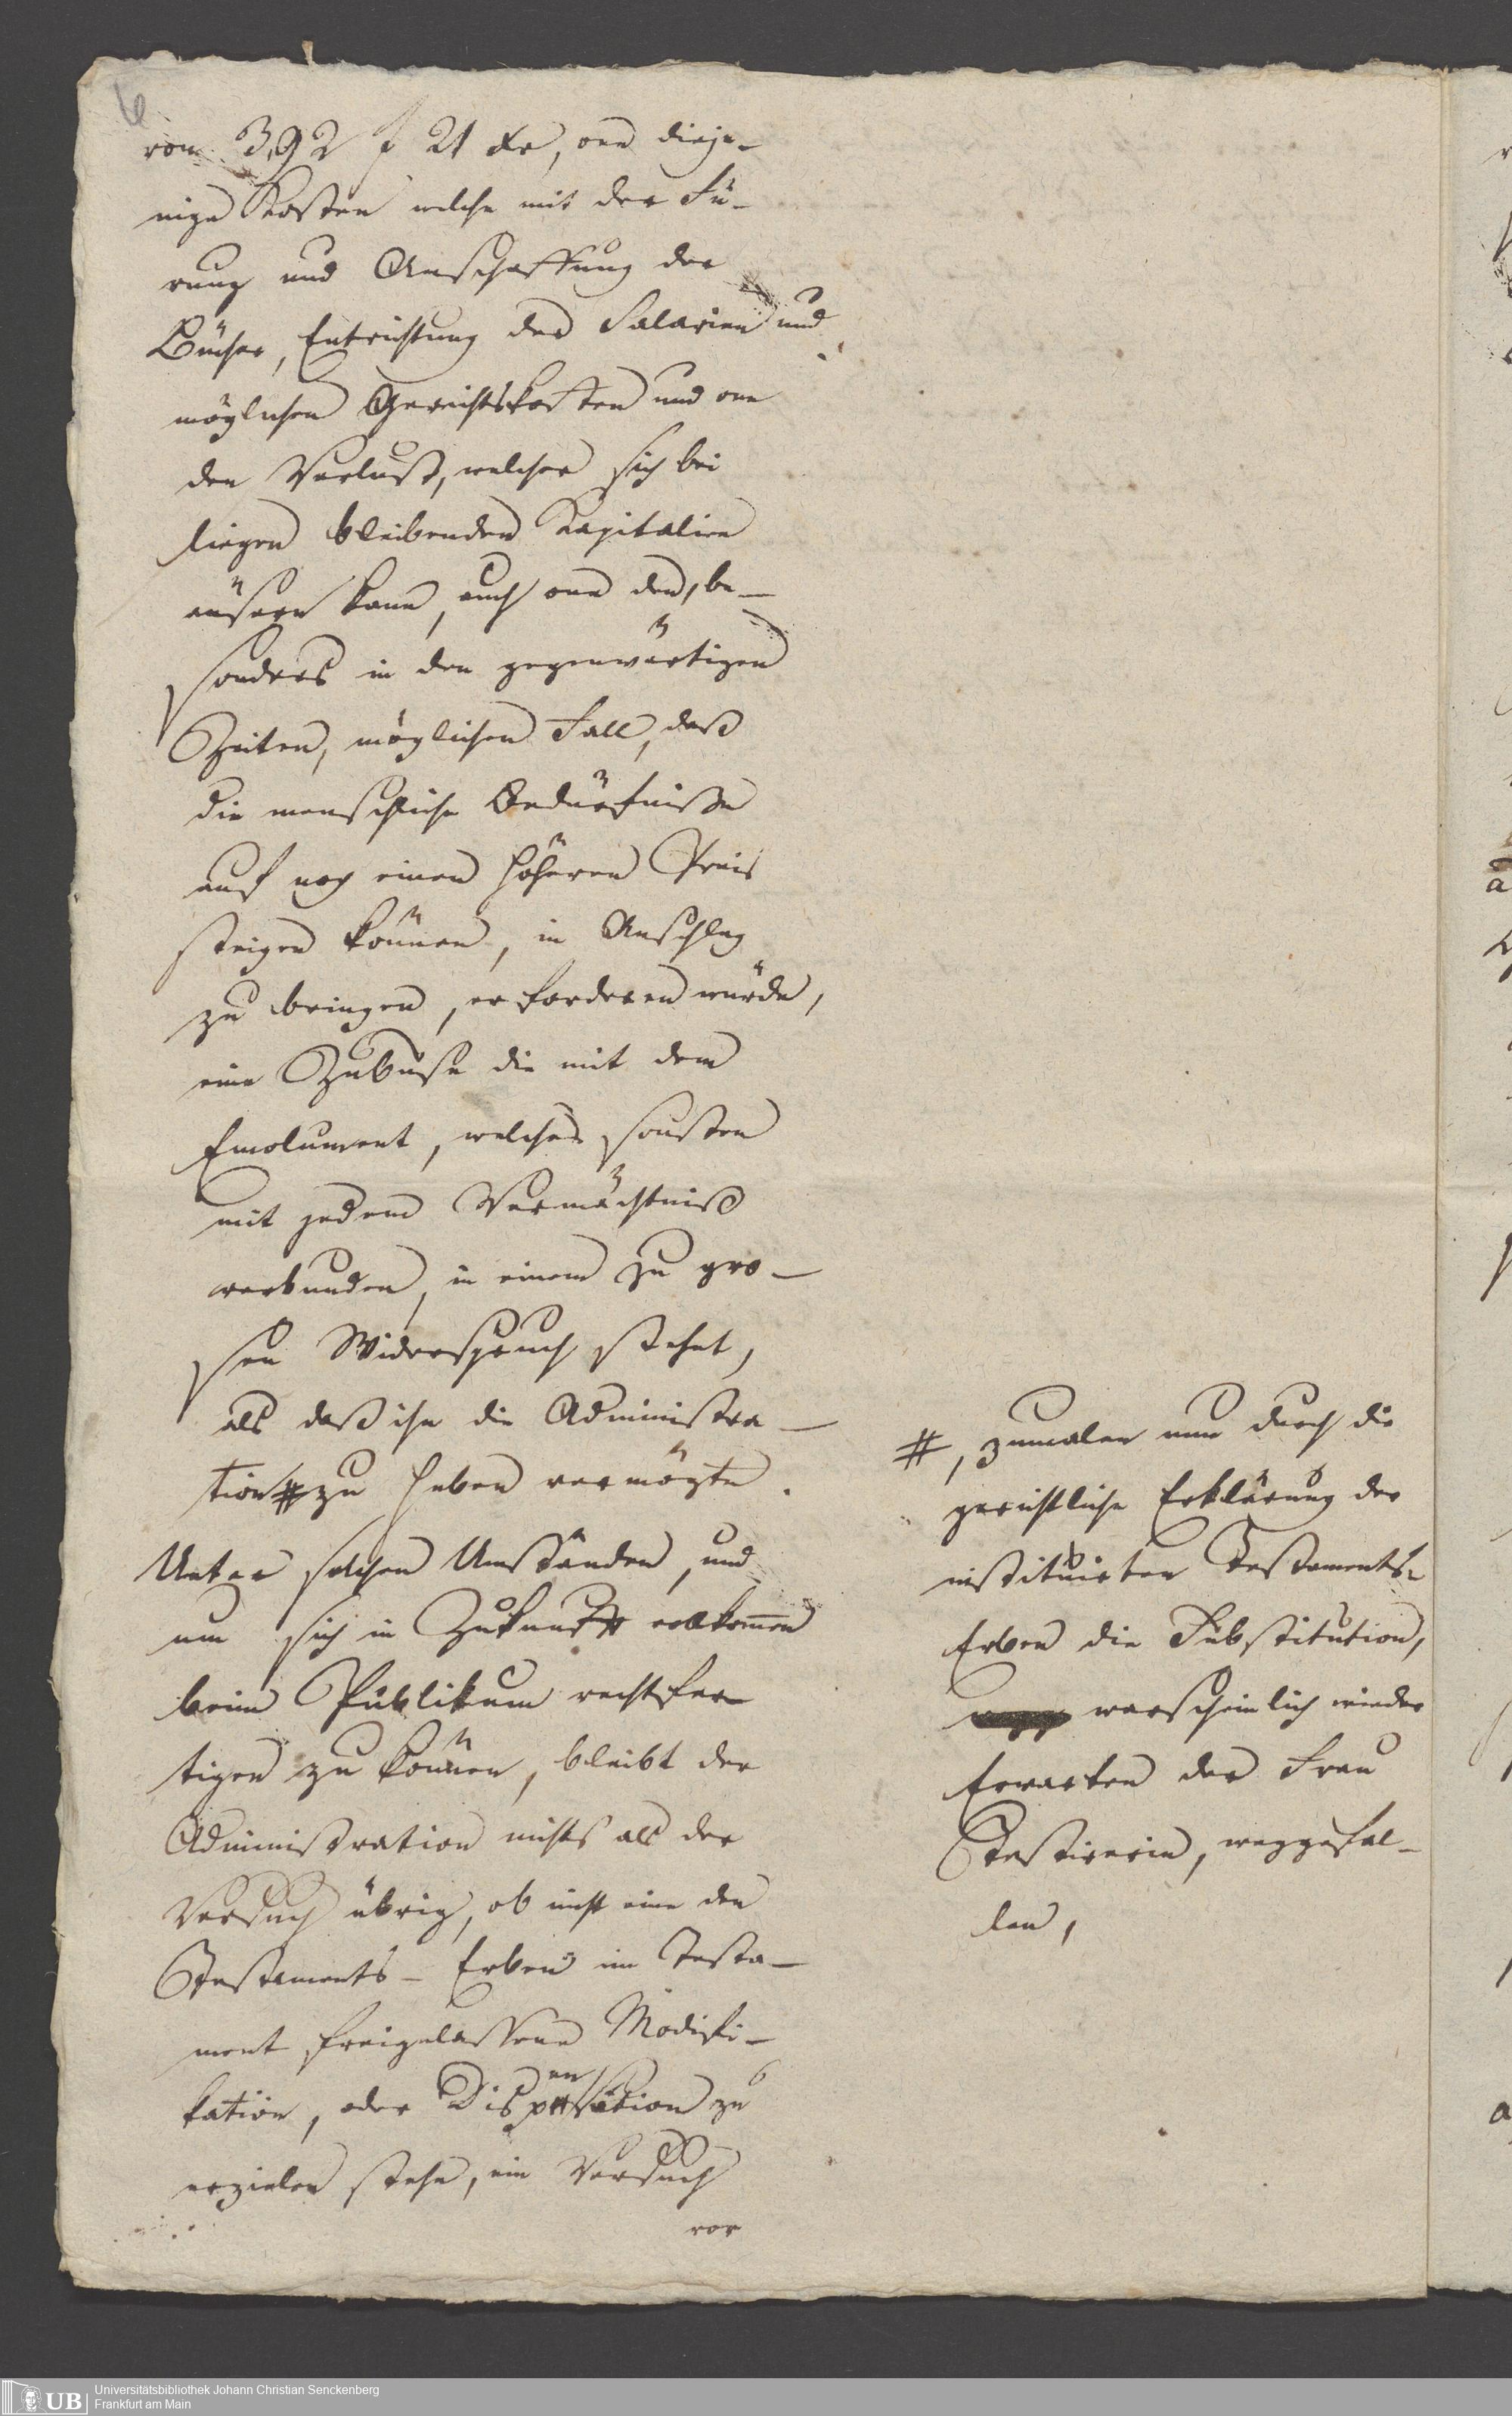 6
von 392 f 21 Xr, one dieje-
nige Kosten welche mit der Fü-
rung und Anschaffung der
Bücher, Entrichtung der Salarien und
möglichen Gerichtskosten und one
den Verlust, welcher sich bei
liegen bleibenden Kapitalien
äusern kann, auch one den, be-
sonders in den gegenwärtigen
Zeiten, möglichen Fall, daß
die menschliche Bedürfnisse
auf noch einen höheren Preis
steigen können, in Anschlag
zu bringen, erforderen würde,
eine Zubuße die mit dem
Emolument, welches sonsten
mit jedem Vermächtniß
verbunden, in einem zu gro-
sen Widerspruch stehet,
als daß ihn die Administra-
tion # zu heben vermögte.
Unter solchen Umständen, und
um sich in Zukunft vollkommen
beim Publikum rechtfer-
tigen zu können, bleibt der
Administration nichts als der
Versuch übrig, ob nicht eine den
Testaments-Erben im Testa-
ment freigelassene Modifi-
kation, oder Dispensation zu
erzielen stehe, ein Versuch
vor
#, zumalen nun durch die
gerichtliche Erklärung der
instituirten Testaments-
Erben die Substitution,
warscheinlich wieder
Erwarten der Frau
Testirerin, weggefal-
len,
UB Universitätsbibliothek Johann Christian Senckenberg
Frankfurt am Main